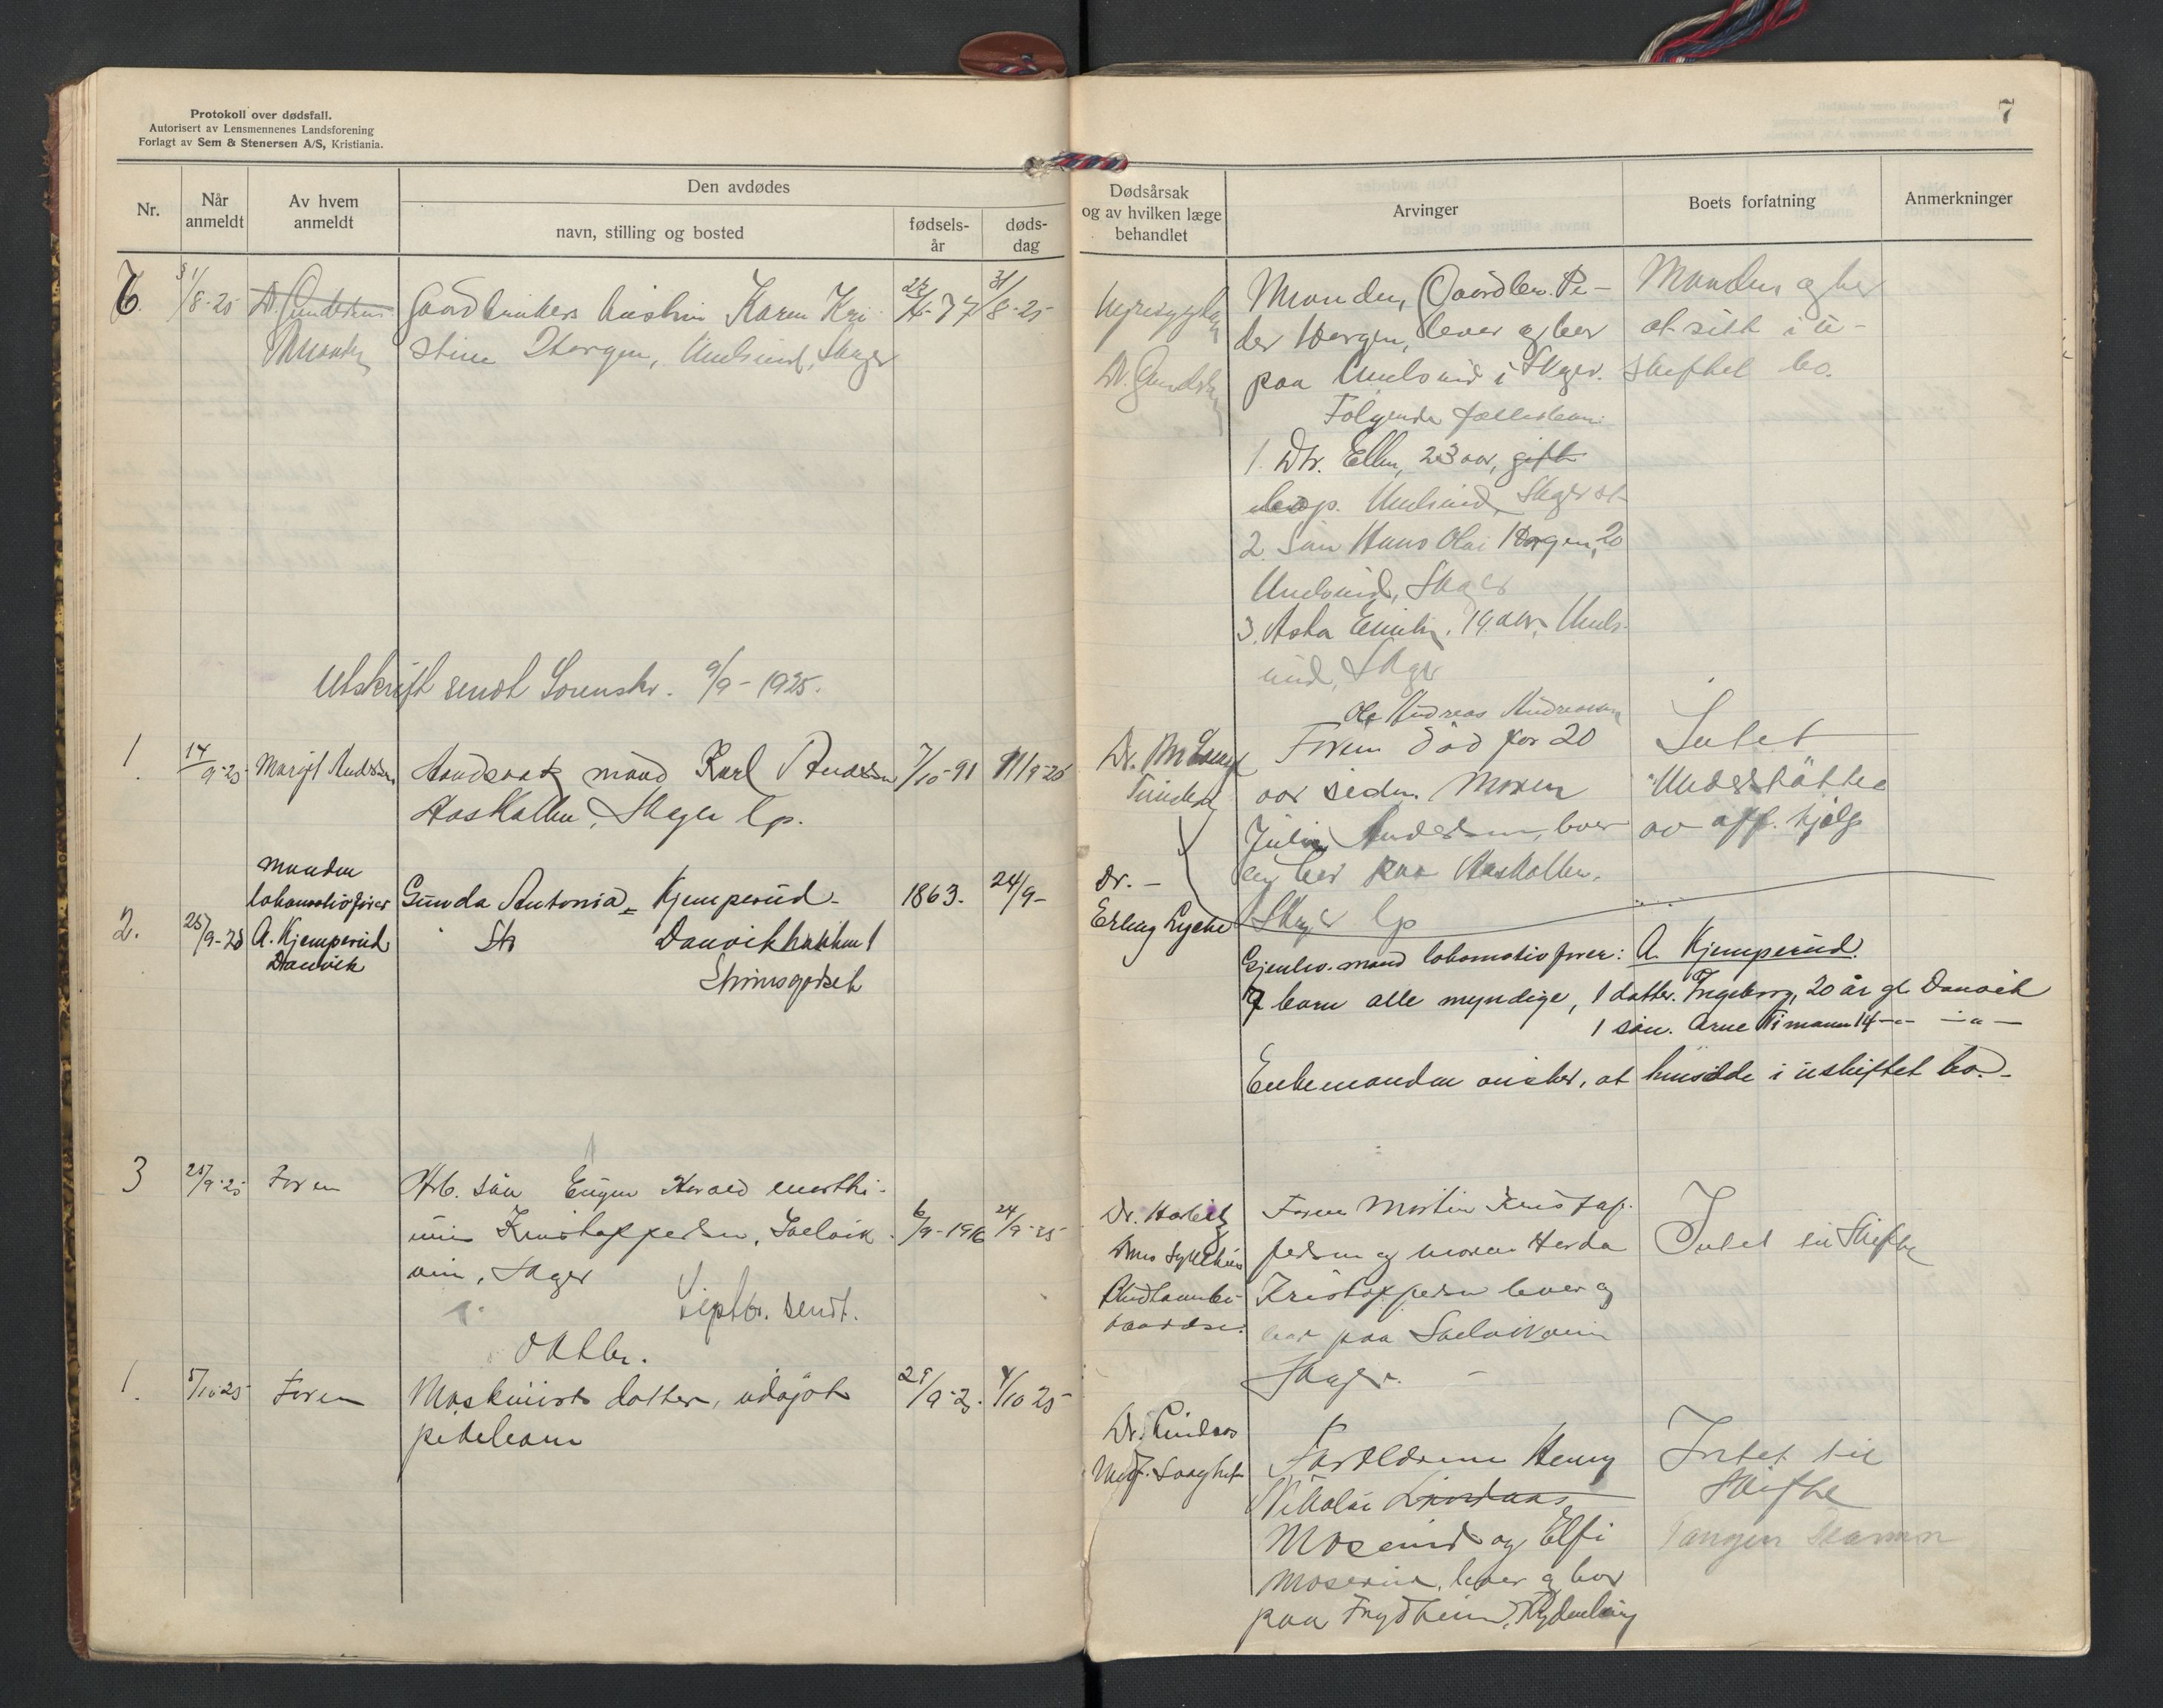 Protokoll over dødsfall.
Autorisert av Lensmennenes Landsforening
Forlagt av Sem & Stenersen A/S, Kristiania.
Nr.
Når anmeldt
Av hvem anmeldt
Den avdødes
navn, stilling og bosted
fødsels-
år
døds-
dag
6. 31/8-25 Dr. Gundersen Gaardbrukers hustru Karen Kri-
Manden stine Horgen, Unelsrud, Skoger
31/8-25
Utskrift sendt Sorenskr. 9/9-1925.
1. 14/9-25 Margit Andersen mand Karl Andersen 7/10-91
Aaskollen, Skoger lp.
manden
lokomotivfører Gunda Antonia Kjemperud- 1863. 24/9-
2. 25/9-25 A. Kjemperud Str Danvikbakken 1
Danvik Strømsgodset
3 25/9-25 Faren Arb. søn Eugen Harald Marthi-
nius Kristoffersen, Solvik- 6/9-1916 24/9-25
vin, Skoger
Septbr. sendt.
Oktbr.
1. 5/10-25 Faren Maskinists datter, udøpt 25/9-25. 4/10 25
pikebarn
7
Dødsårsak
og av hvilken læge
behandlet
Arvinger
Boets forfatning
Anmerkninger
Nyresygdom Manden, Gaardbr. Pe- Manden ønsker
der Horgen, lever og bor at sitte i u-
Dr. Gundersen paa Unelsrud i Skoger. skiftet bo.
Følgende fællesbarn:
1. Dtr. Ellen, 23 aar, gift
Unelsrud, Skoger
2. Søn Hans Olai Horgen, 20
Unelsrud, Skoger
3. Asta 19 aar, Unels-
rud, Skoger
Ole Andreas Andreassen
Dr. Faren død for 20 Intet
aar siden. Moren Understøttet
Julie Andersen, lever av off. hjælp
og bor paa Aaskollen.
Dr. -
Erling Lycke Skoger lp
Gjenlev. mand lokomotivfører: A. Kjemperud.
7 barn alle myndige, 1 datter. Ingeborg, 20 år gl. Danvik
1 søn. Arne 14 -"- -"-
Enkemanden ønsker, at hensidde i uskiftet bo.-
Dr. Faren Martin Kristof-
fersen og moren Herda Intet til Skifte
Kristoffersen lever og
bor paa Solvikvin
Skoger.
Dr. Lindaas
Medf. Svaghet Forældrene Henry Intet til
Nikolai Lindaas Skifte
Moserud og Elfi Tangen Drammen
Moserud, lever og bor
paa Frydheim, Rydenberg